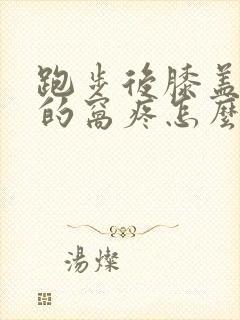 跑步後膝蓋
的窩疼怎麼
湯燦